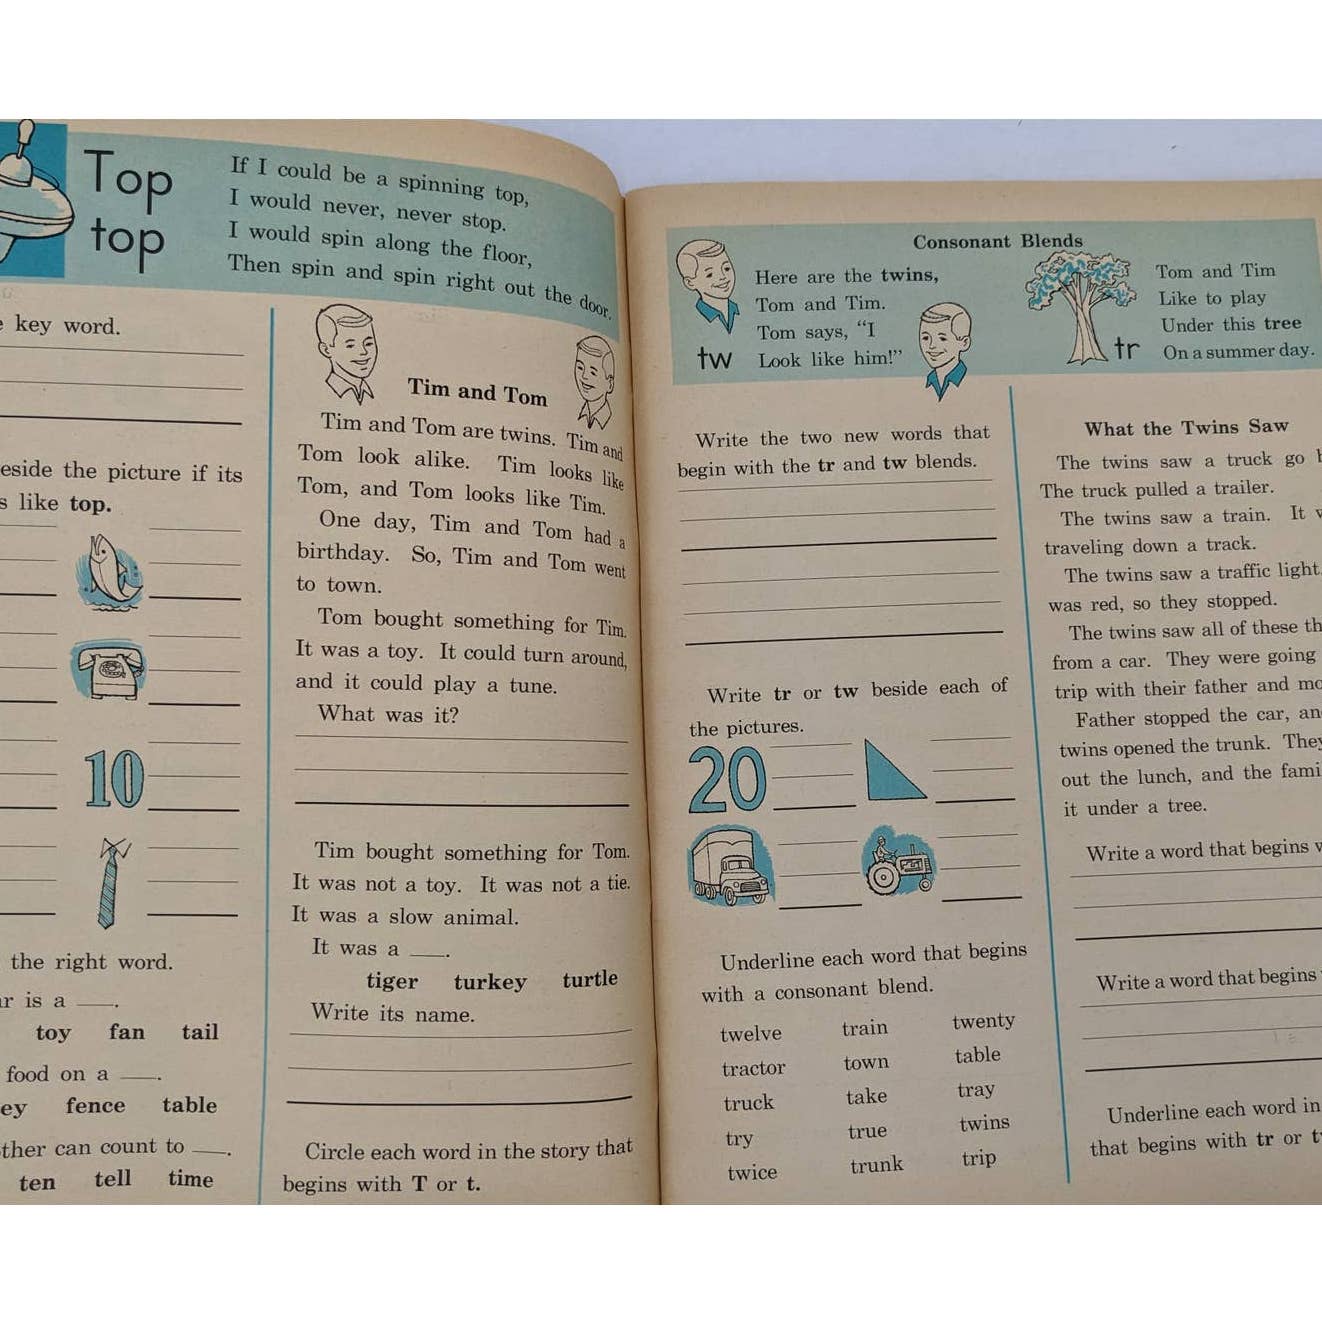 Top
top
If I could be a spinning top,
I would never, never stop.
I would spin along the floor,
Then spin and spin right out the door.
key word.
the picture if its
like top.
10
the right word.
is a ___.
toy fan tail
food on a ___.
fence table
can count to ___.
ten tell time
Tim and Tom
Tim and Tom are twins. Tim and
Tom look alike. Tim looks like
Tom, and Tom looks like Tim.
One day, Tim and Tom had a
birthday. So, Tim and Tom went
to town.
Tom bought something for Tim.
It was a toy. It could turn around,
and it could play a tune.
What was it?
Tim bought something for Tom.
It was not a toy. It was not a tie.
It was a slow animal.
It was a ___.
tiger turkey turtle
Write its name.
Circle each word in the story that
begins with T or t.
Consonant Blends
Here are the twins,
Tom and Tim.
Tom says, “I
Look like him!”
tw
tr
Tom and Tim
Like to play
Under this tree
On a summer day.
Write the two new words that
begin with the tr and tw blends.
Write tr or tw beside each of
the pictures.
20
Underline each word that begins
with a consonant blend.
twelve train twenty
tractor town table
truck take tray
try true twins
twice trunk trip
What the Twins Saw
The twins saw a truck go
The truck pulled a trailer.
The twins saw a train. It
traveling down a track.
The twins saw a traffic light.
was red, so they stopped.
The twins saw all of these
from a car. They were going
trip with their father and
Father stopped the car,
twins opened the trunk.
out the lunch, and the
it under a tree.
Write a word that begins
Write a word that begins
Underline each word in
that begins with tr or